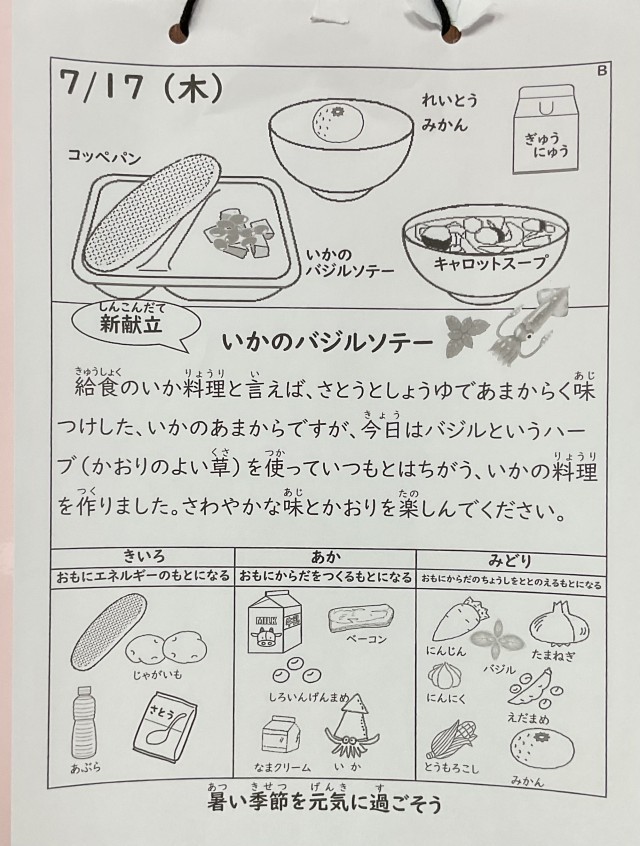 B
7/17（木）
れいとう
みかん
ぎゅう
にゅう
コッペパン
いかの
バジルソテー
キャロットスープ
しんこんだて
新献立
いかのバジルソテー
きゅうしょく りょうり い あじ
給食のいか料理と言えば、さとうとしょうゆであまからく味
きょう
つけした、いかのあまからですが、今日はバジルというハー
くさ つか りょうり
ブ（かおりのよい草）を使っていつもとはちがう、いかの料理
つく あじ たの
を作りました。さわやかな味とかおりを楽しんでください。
きいろ
おもにエネルギーのもとになる
じゃがいも
さとう
あぶら
あか
おもにからだをつくるもとになる
MILK
ベーコン
しろいんげんまめ
なまクリーム
いか
みどり
おもにからだのちょうしをととのえるもとになる
にんじん
バジル
たまねぎ
にんにく
えだまめ
とうもろこし
みかん
あつ きせつ げんき す
暑い季節を元気に過ごそう